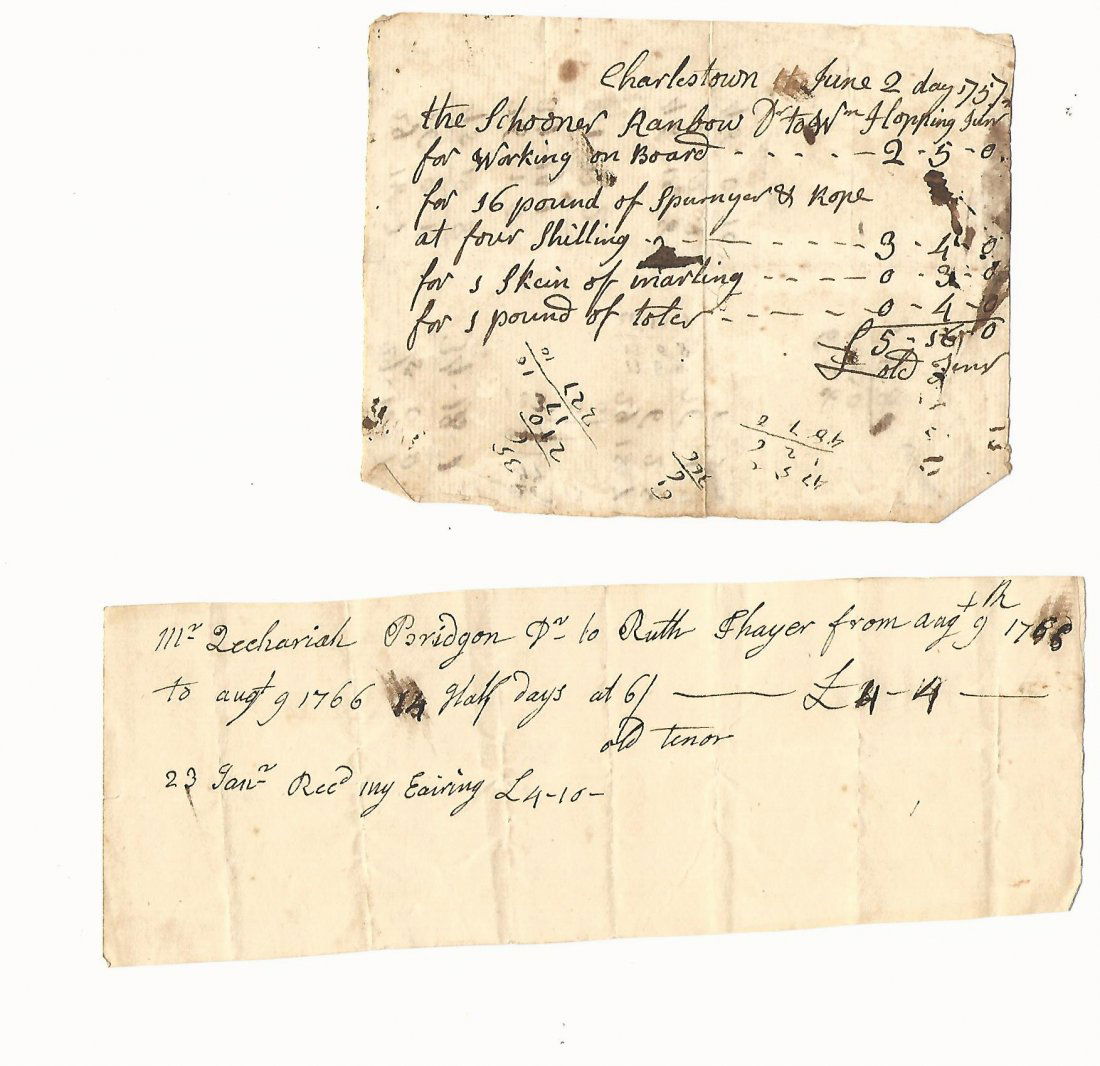 Charlestown June 2 day 1757
the Schooner Ranbow Dr to Wm Hopping Junr
for Working on Board - - - - - 2 - 5 - 0
for 16 pound of Spurnyer & Rope
at four Shilling - - - - - - 3 - 4 - 0
for 1 Skein of marling - - - - 0 - 3 - 0
for 1 pound of toler - - - - - 0 - 4 - 0
£ 5 - 16 - 0
old Tenr
Mr Zechariah Bridgon Dr to Ruth Thayer from augt 9th 1766
to augt 9 1766 14 Half days at 6/ — £ 4 - 4 —
old tenor
23 Janr Recd my Earing £ 4-10-